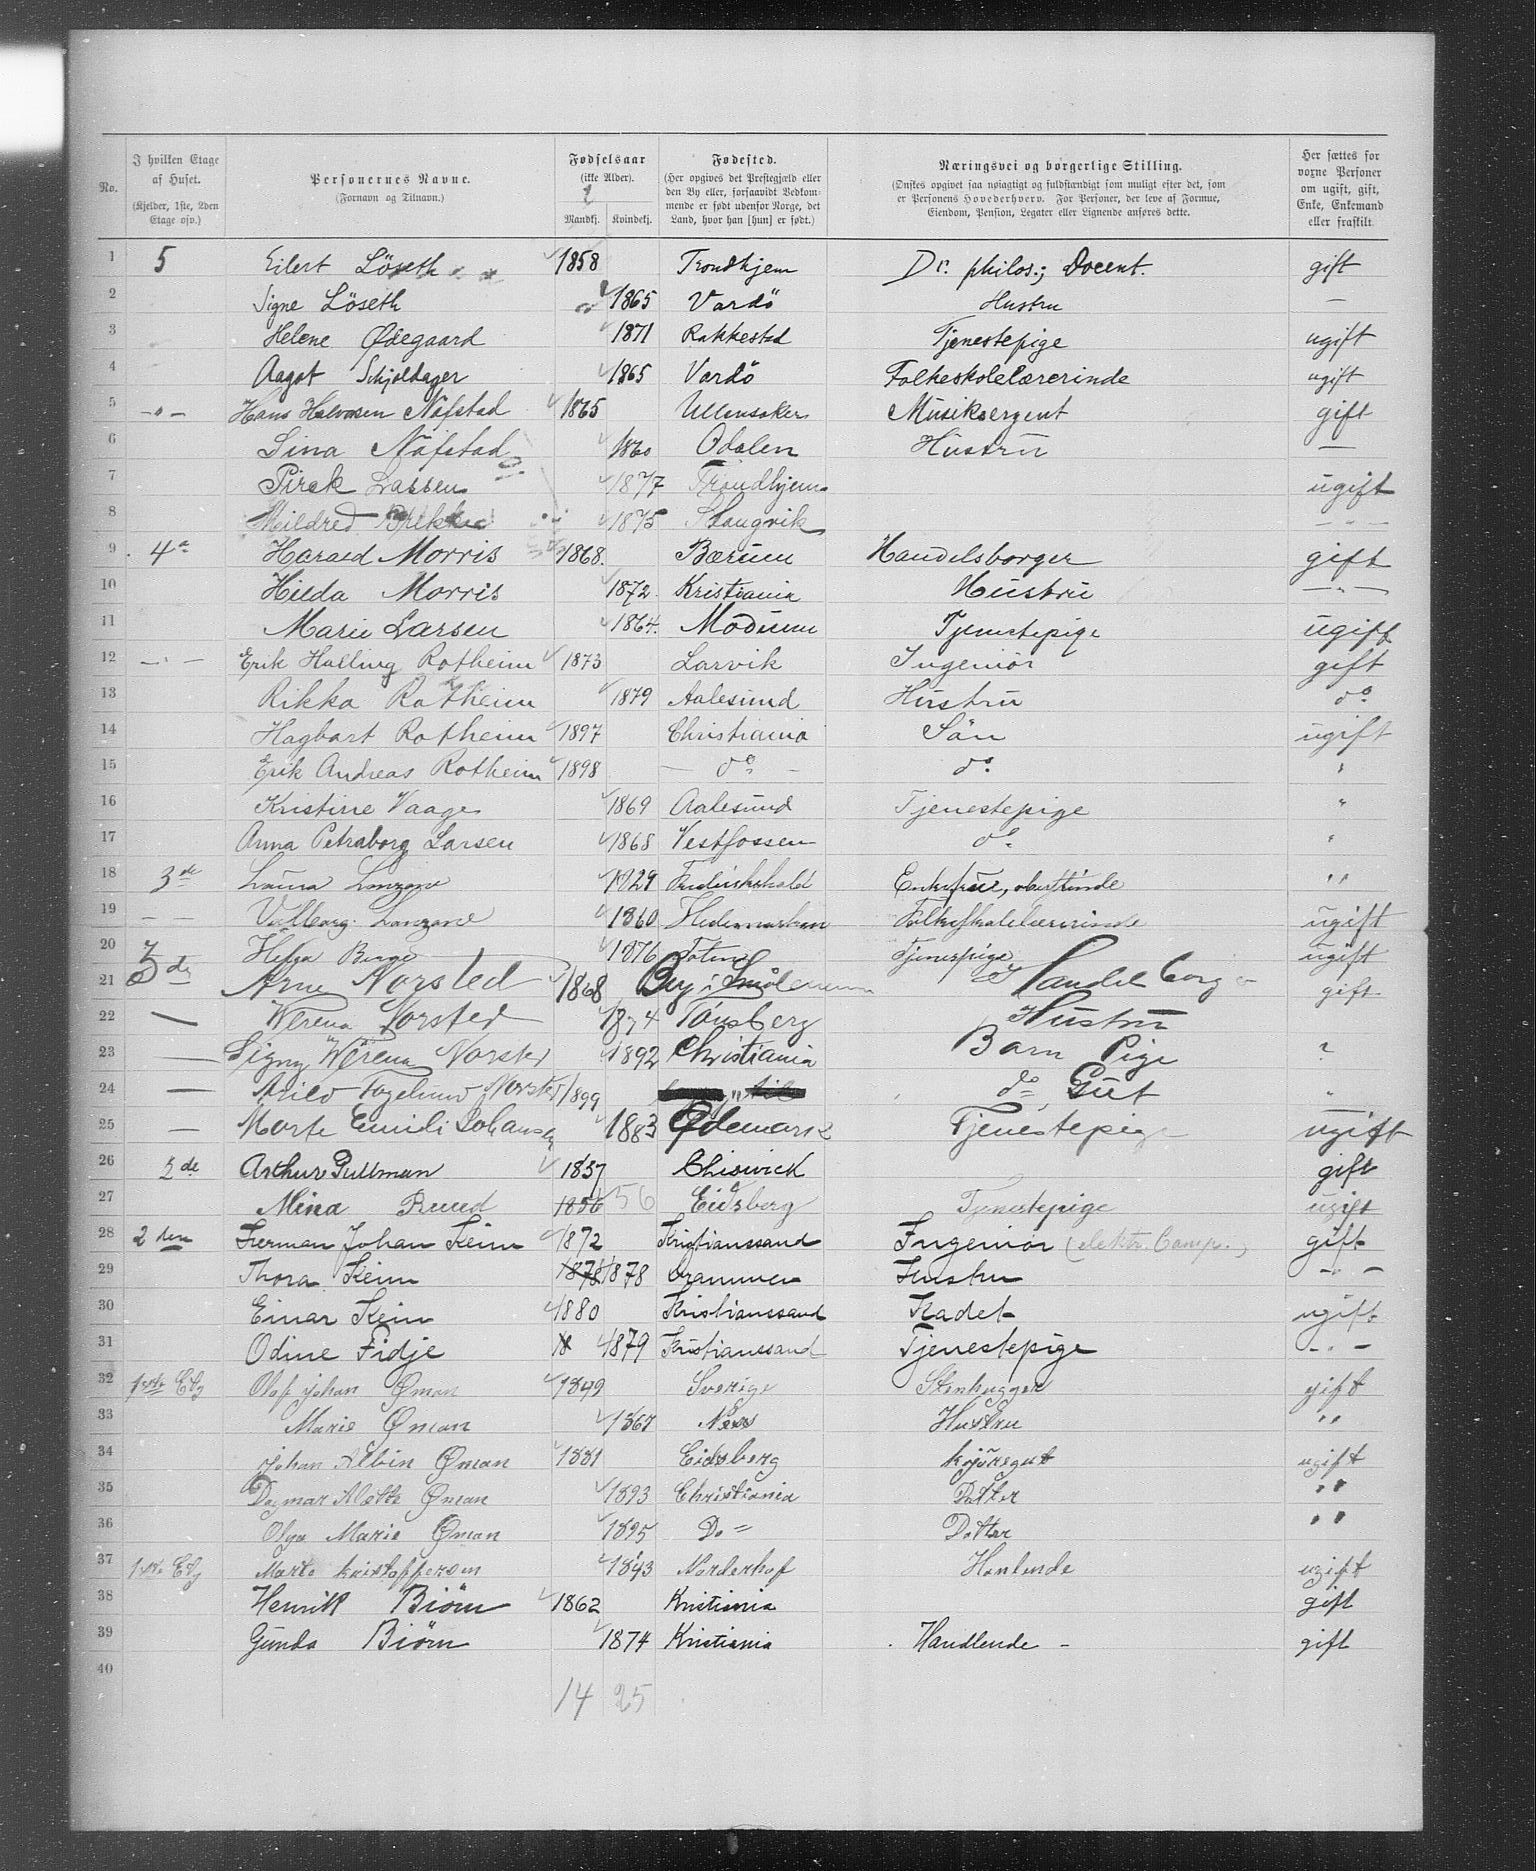 No. I hvilken Etage af Huset. (Kjelder, 1ste, 2den Etage osv.) Personernes Navne. (Fornavn og Tilnavn.) Fødselsaar (ikke Alder). Mandkj. Kvindekj. Fødested. (Her opgives det Prestegjæld eller den By eller, forsaavidt Vedkommende er født udenfor Norge, det Land, hvor han [hun] er født.) Næringsvei og borgerlige Stilling. (Ønskes opgivet saa nøiagtigt og fuldstændigt som muligt efter det, som er Personens Hovederhverv. For Personer, der leve af Formue, Eiendom, Pension, Legater eller Lignende anføres dette. Her sættes for voxne Personer om ugift, gift, Enke, Enkemand eller fraskilt.
1 5 Eilert Löseth 1858 Trondhjem Dr. philos.; Docent. gift
2 Signe Löseth 1865 Vardö Hustru —
3 Helene Ødegaard 1871 Rakkestad Tjenestepige ugift
4 Aagot Schjoldager 1865 Vardö Folkeskolelærerinde ugift
5 -"- Hans Halvorsen Näfstad 1865 Ullensaker Musiksergent gift
6 Lina Näfstad 1860 Odalen Hustru —
7 Pirek Lassen 1877 Trondhjem ugift
8 Mildred 1875 Stangvik - " -
9 4de Harald Morris 1868. Bærum Handelsborger gift
10 Hilda Morris 1872 Kristiania Hustru - " -
11 Marie Larsen 1864. Modum Tjenestepige ugift
12 - " - Erik Halling Rotheim 1873 Larvik Ingeniör gift
13 Rikka Rotheim 1879 Aalesund Hustru do
14 Hagbart Rotheim 1897 Christiania Sön ugift
15 Erik Andreas Rotheim 1898 — do — do "
16 Kristine Vaage 1869 Aalesund Tjenestepige "
17 Anna Petraborg Larsen 1868 Vestfossen do "
18 3de Laura 1829 Fredrikshald Enkefrue, "
19 — — 1860 Hedemarken Folkeskolelærerinde ugift
20 Helga Berge 1876 Toten Tjenespige ugift
21 3de Arne Norsted 1868 gift
22 — Werena Norsted 1874 Tönsberg Hustru
23 — Signy Werena Norsted 1892 Christiania Barn Pige "
24 — Norsted 1899 do Gut "
25 — Marte Emili Johansen 1883 Ødemark Tjenestepige ugift
26 2de Arthur Pullman 1857 Chiswick gift
27 Mina Ruud 1856 56 Eidsberg Tjenestepige ugift
28 2den Herman Johan Keim 1872 Kristianssand Ingeniör (elektr. Comp.) gift
29 Thora Keim 1878 1878 Drammen Hustru - " -
30 Einar Keim 1880 Kristianssand Kadet ugift
31 Odine Fidje 18 1879 Kristianssand Tjenestepige - " -
32 1ste Etg Olof Johan Öman 1849 Sverige Stenhugger gift
33 Marie Öman 1867 Næs Hustru "
34 Johan Albin Öman 1881 Eidsberg kjöregut ugift
35 Dagmar Mette Öman 1893 Christiania Datter "
36 Olga Marie Öman 1895 Do = Datter "
37 1ste Etg Marte Kristoffersen 1843 Norderhof Hanlende ugift
38 Henrik Biörn 1862 Kristiania gift
39 Gunda Biörn 1874 Kristiania Handlende - gift
40
14 25